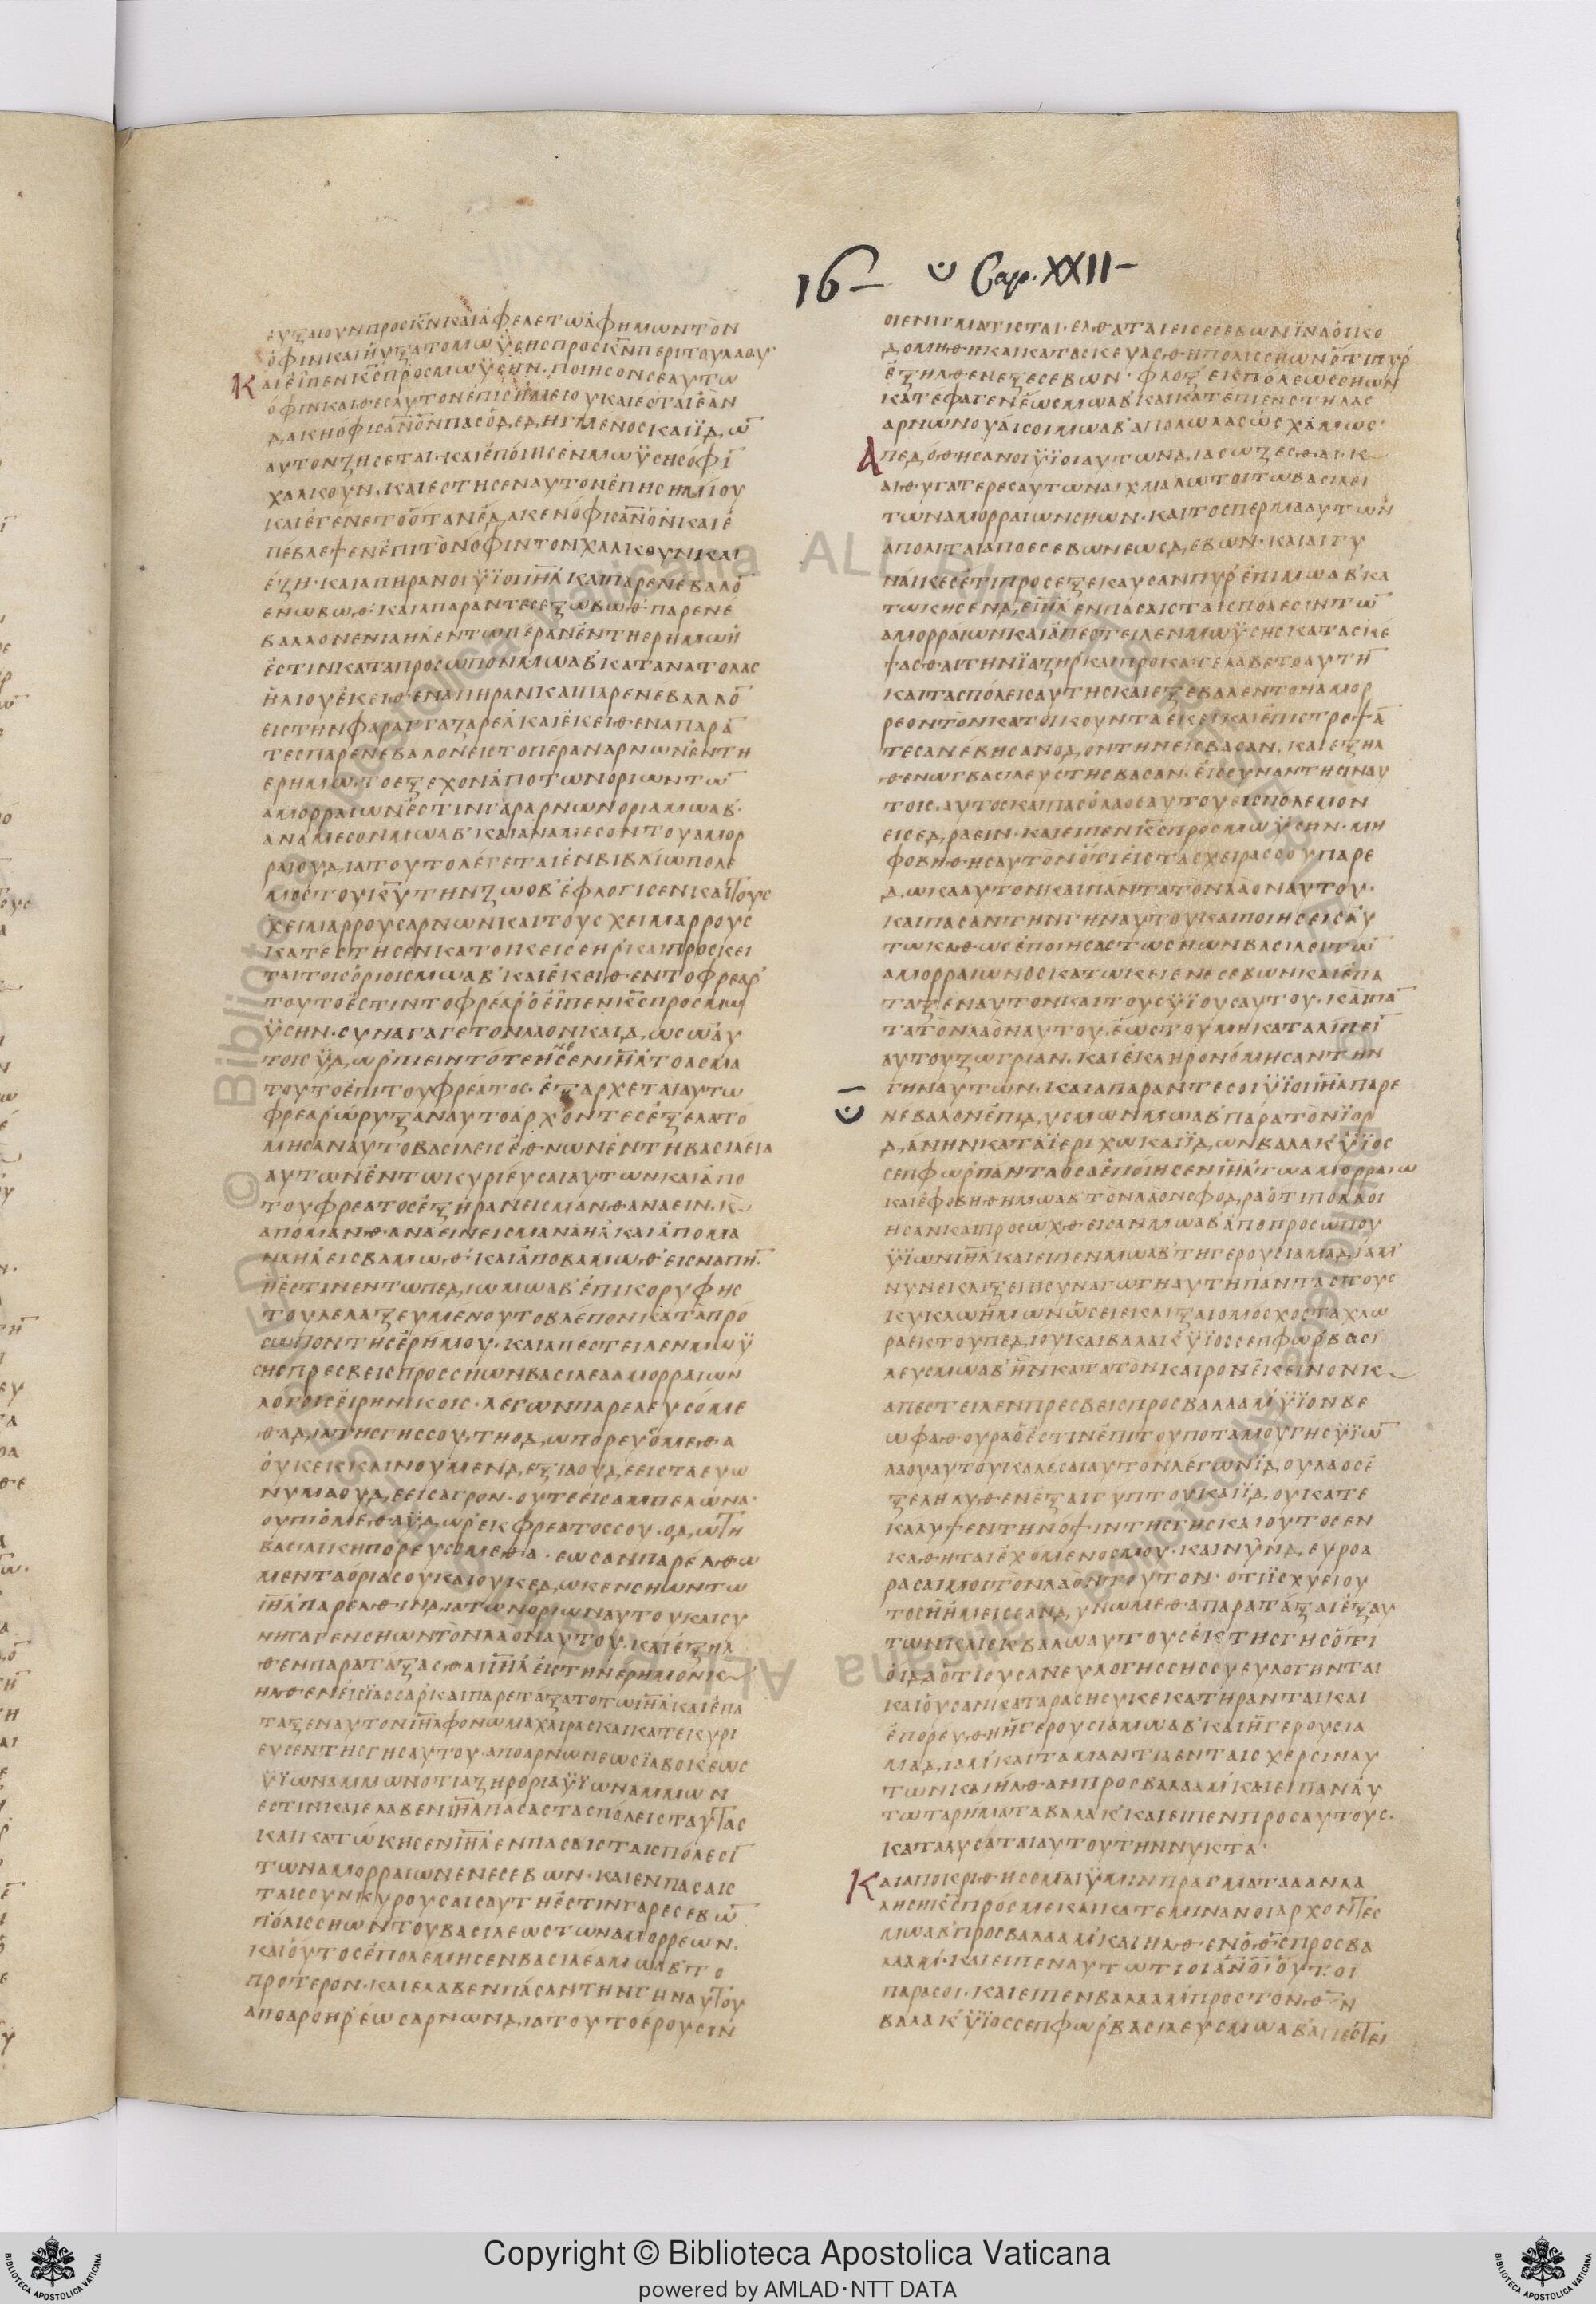 16– Cap. XXII–
ευξαι ουν προς κ̅ν και αφελετω αφ ημων τον
οφιν και ηυξατο μωϋσης προς κ̅ν περι του λαου
Και ειπεν κ̅ς προς μωϋσην· ποιησον σεαυτω
οφιν και θες αυτον επι σημειου και εσται εαν
δακη οφις α̅ν̅ο̅ν πας ο δεδηγμενος και ϊδω̅
αυτον ζησεται· και εποιησεν μωϋσης οφι̅
χαλκουν· και εστησεν αυτον επι σημιου
και εγενετο οταν εδακεν οφις α̅ν̅ο̅ν και ε
πεβλεψεν επι τον οφιν τον χαλκουν και
εζη· και απηραν οι ϋϊοι ι̅η̅λ και παρενεβαλο̅
εν ωβωθ· και απαραντες εξ ωβωθ· παρενε
βαλλον εν ιαηλ εν τω περαν εν τη ερημω η
εστιν κατα προσωπον μωαβ κατ ανατολας
ηλιου εκειθεν απηραν και παρενεβαλλο̅
εις την φαραγγα ζαρελ και εκειθεν απαρα̅
τες παρενεβαλον εις το περαν αρνων εν τη
ερημω· το εξεχον απο των οριων τω̅
αμορραιων εστιν γαρ αρνων ορια μωαβ·
ανα μεσον μωαβ και ανα μεσον του αμορ
ραιου δια τουτο λεγεται εν βιβλιω πολε
μος του κ̅υ την ζωοβ εφλογισεν και τους
χειμαρρους αρνων και τους χειμαρρους
κατεστησεν κατοικεις εηρ και προσκει
ται τοις οριοις μωαβ και εκειθεν το φρεαρ
τουτο εστιν το φρεαρ ο ειπεν κ̅ς προς μω
ϋσην· συναγαγε τον λαον και δωσω αυ
τοις ϋδωρ πιειν τοτε ησεν ι̅η̅λ το ασμα
τουτο επι του φρεατος· εξαρχεται αυτω
φρεαρ ωρυξαν αυτο αρχοντες εξελατο
μησαν αυτο βασιλεις εθνων εν τη βασιλεια
αυτων εν τω κυριευσαι αυτων και απο
του φρεατος εξηραν εις μανθαναειν· κ
απο μανθαναειν εις μαναηλ και απο μα
ναηλ εις βαμωθ· και απο βαμωθ εις ναπη̅·
η εστιν εν τω πεδιω μωαβ επι κορυφης
του λελαξευμενου το βλεπον κατα προ
σωπον της ερημου· και απεστειλεν μωϋ
σης πρεσβεις προς σηων βασιλεα αμορραιων
λογοις ειρηνικοις· λεγων παρελευσομε
θα δια της γης σου· τη οδω πορευομεθα
ουκ εκκλινουμεν δεξια ουδε εις τα ευω
νυμα ουδε εις αγρον· ουτε εις αμπελωνα·
ου πιομεθα ϋδωρ εκ φρεατος σου· οδω τη
βασιλικη πορευσομεθα· εως αν παρελθω
μεν τα ορια σου και ουκ εδωκεν σηων τω
ι̅η̅λ παρελθιν δια των οριων αυτου και συ
νηγαγεν σηων τον λαον αυτου· και εξηλ
θεν παραταξασθαι ι̅η̅λ εις την ερημον κ
ηλθεν εις ϊασσαρ και παρεταξατο τω ι̅η̅λ και επα
ταξεν αυτον ι̅η̅λ φονω μαχαιρας και κατεκυρι
ευσεν της γης αυτου απο αρνων εως ϊαβοκ εως
ϋϊων αμμων οτι αζηρ ορια ϋϊων αμμων
εστιν και ελαβεν ι̅η̅λ πασας τας πολεις ταυτας
και κατωκησεν ι̅η̅λ εν πασαις ταις πολεσι̅
των αμορραιων εν εσεβων· και εν πασαις
ταις συνκυρουσαις αυτη εστιν γαρ εσεβω̅
πολις σηων του βασιλεως των αμορρεων·
και ουτος επολεμησεν βασιλεα μωαβ το
προτερον· και ελαβεν πασαν την γην αυτου
απο αροηρ εως αρνων δια τουτο ερουσιν
οι ενιγματισται· ελθαται εις εσεβων ϊνα οικο
δομηθη και κατασκευασθη πολις σηων οτι πυρ
εξηλθεν εξ εσεβων· φλοξ εκ πολεως σηων
κατεφαγεν εως μωαβ και κατεπιεν στηλας
αρνων ουαι σοι μωαβ απολωλας ως χαμως·
Απεδοθησαν οι ϋϊοι αυτων διασωζεσθαι· κ
αι θυγατερες αυτων αιχμαλωτοι τω βασιλει
των αμορραιων σηων· και το σπερμα αυτων
απολιται απο εσεβων εως δεβων· και αι γυ
ναικες ετι προσεξεκαυσαν πυρ επι μωαβ κα
τωκησεν δε ι̅η̅λ εν πασαις ταις πολεσιν τω̅
αμορραιων και απεστειλεν μωϋσης κατασκε
ψασθαι την ϊαζηρ και προκατελαβετο αυτη̅
και τας πολεις αυτης και εξεβαλεν τον αμορ
ρεον τον κατοικουντα εκει και επιστρεψα̅
τες ανεβησαν οδον την εις βασαν· και εξηλ
θεν ωγ βασιλευς της βασαν· εις συναντησιν αυ
τοις· αυτος και πας ο λαος αυτου εις πολεμον
εις εδραειν· και ειπεν κ̅ς προς μωϋσην· μη
φοβηθης αυτον οτι εις τας χειρας σου παρε
δωκα αυτον και παντα τον λαον αυτου·
και πασαν την γην αυτου και ποιησεις αυ
τω καθως εποιησας τω σηων βασιλει τω̅
αμορραιων ος κατωκει εν εσεβων και επα
ταξεν αυτον και τους ϋϊους αυτου· και πα̅
τα τον λαον αυτου· εως του μη καταλιπει̅
αυτου ζωγριαν· και εκληρονομησαν την
γην αυτων· και απαραντες οι ϋϊοι ι̅η̅λ παρε
νεβαλον επι δυσμων μωαβ παρα τον ϊορ
δανην κατα ϊεριχω και ϊδων βαλακ ϋϊος
σεπφωρ παντα οσα εποιησεν ι̅η̅λ τω αμορραιω
και εφοβηθη μωαβ τον λαον σφοδρα οτι πολλοι
ησαν και προσωχθεισαν μωαβ απο προσωπου
ϋϊων ι̅η̅λ και ειπεν μωαβ τη γερουσια μαδιαμ
νυν εκλιξει η συναγωγη αυτη παντας τους
κυκλω ημων ωσει εκλιξαι ο μοσχος τα χλω
ρα εκ του πεδιου και βαλακ ϋϊος σεπφωρ βασι
λευς μωαβ ην κατα τον καιρον εκεινον κ
απεστειλεν πρεσβεις προς βαλααμ ϋϊον βε
ωρ φαθουρα ο εστιν επι του ποταμου γης ϋϊω̅
λαου αυτου καλεσαι αυτον λεγων ϊδου λαος ε
ξεληλυθεν εξ αιγυπτου και ϊδου κατε
καλυψεν την οψιν της γης και ουτος εν
καθηται εχομενος μου· και νυν δευρο α
ρασαι μοι τον λαον τουτον· οτι ϊσχυει ου
τος η ημεις εαν δυνωμεθα παραταξαι εξ αυ
των και εκβαλω αυτους εκ της γης οτι
οιδα οτι ους αν ευλογησης συ ευλογηνται
και ους αν καταραση συ κεκατηρανται και
επορευθη η γερουσια μωαβ και η γερουσια
μαδιαμ και τα μαντια εν ταις χερσιν αυ
των και ηλθαν προς βαλααμ και ειπαν αυ
τω τα ρηματα βαλακ και ειπεν προς αυτους·
καταλυσαται αυτου την νυκτα·
Και αποκριθησομαι ϋμιν πραγματα α αν λα
ληση κ̅ς προς με και κατεμιναν οι αρχοντες
μωαβ προς βαλααμ και ηλθεν ο θ̅ς προς βα
λααμ· και ειπεν αυτω τι οι α̅ν̅ο̅ι ουτοι
παρα σοι· και ειπεν βαλααμ προς τον θ̅ν
βαλακ ϋϊος σεπφωρ βασιλευς μωαβ απεστει